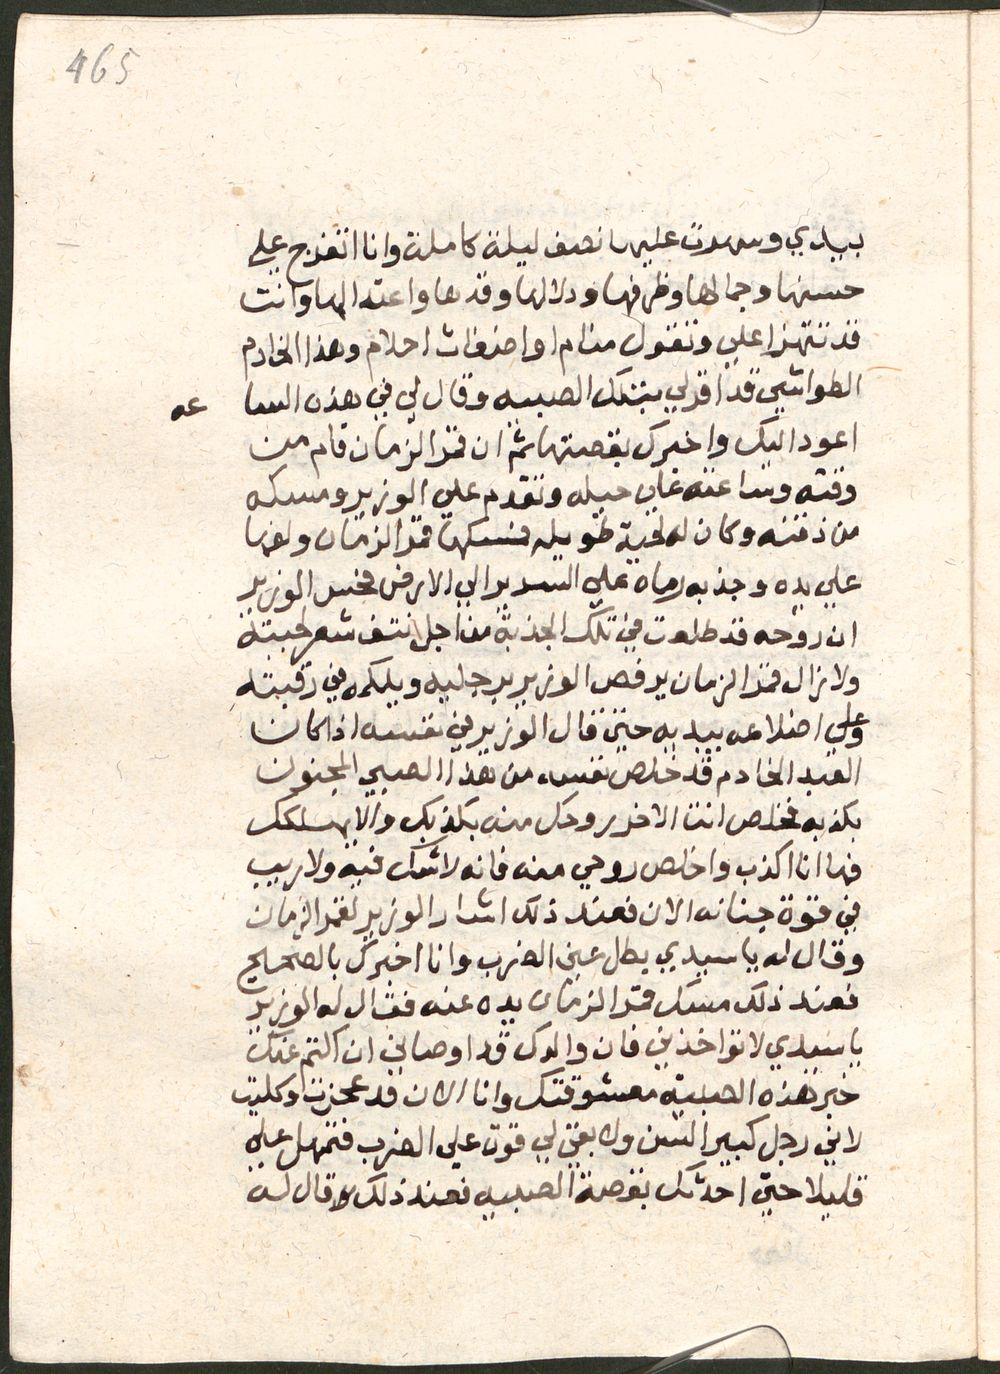 465
بيدي وسهرت عليها نصف ليلة كاملة وانا اتفرج علي
حسنها وجمالها وظرفها ودلالها وقدها واعتدالها وانت
قد تتهزا علي وتقول منام او اضغاث احلام وهذا الخادم
الطواشي قد اقر لي بتلك الصبيه وقال لي في هذه السا عه
اعود اليك واخبرك بقصتها ثم ان قمر الزمان قام من
وقته وساعته علي حيله وتقدم علي الوزير ومسكه
من ذقنه وكان له لحية طويله فمسكها قمر الزمان ولفها
علي يده وجذبه رماه علي السرير الي الارض فحس الوزير
ان روحه قد طلعت في تلك الجذبة من اجل نتف شعر لحيته
ولا زال قمر الزمان يرفص الوزير برجليه ويلكمه في رقبته
وعلي اضلاعه بيديه حتي قال الوزير في نفسه اذا كان
العبد الخادم قد خلص نفسه من هذا الصبي المجنون
بكذبه فخلص انت الاخر روحك منه بكذبك والا يهلكك
فها انا اكذب واخلص روحي منه فانه لا شك فيه ولا ريب
في قوة جنانه الان فعند ذلك اشار الوزير لقمر الزمان
وقال له يا سيدي بطل عني الضرب وانا اخبرك بالصحيح
فعند ذلك مسك قمر الزمان يده عنه فقال له الوزير
يا سيدي لا تواخذني فان والدك قد اوصاني ان اكتم عنك
خبر هذه الصبيه معشوقتك وانا الان قد عجزت وكليت
لاني رجل كبير السن ولا بقي لي قوت علي الضرب فتمهل عليه
قليلا حتي احدثك بقصة الصبيه فعند ذلك قال له